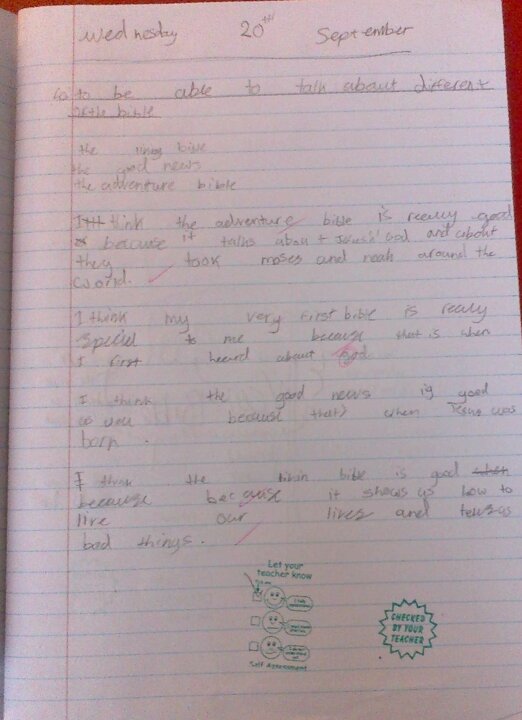 Wednesday 20th September
Lo to be able to talk about different
of the bible
the living bible
the good news
the adventure bible
I tink the adventure bible is really good
because it talks about Jesus' God and about
they took moses and noah around the
world.
I think my very first bible is really
special to me because that is when
I first heard about God
I think the good news is good
as well because thats when Jesus was
born.
I think the bible is good when
because because it shows us how to
live our lives and tells us
bad things.
Let your
teacher know
Self Assessment
CHECKED
BY YOUR
TEACHER